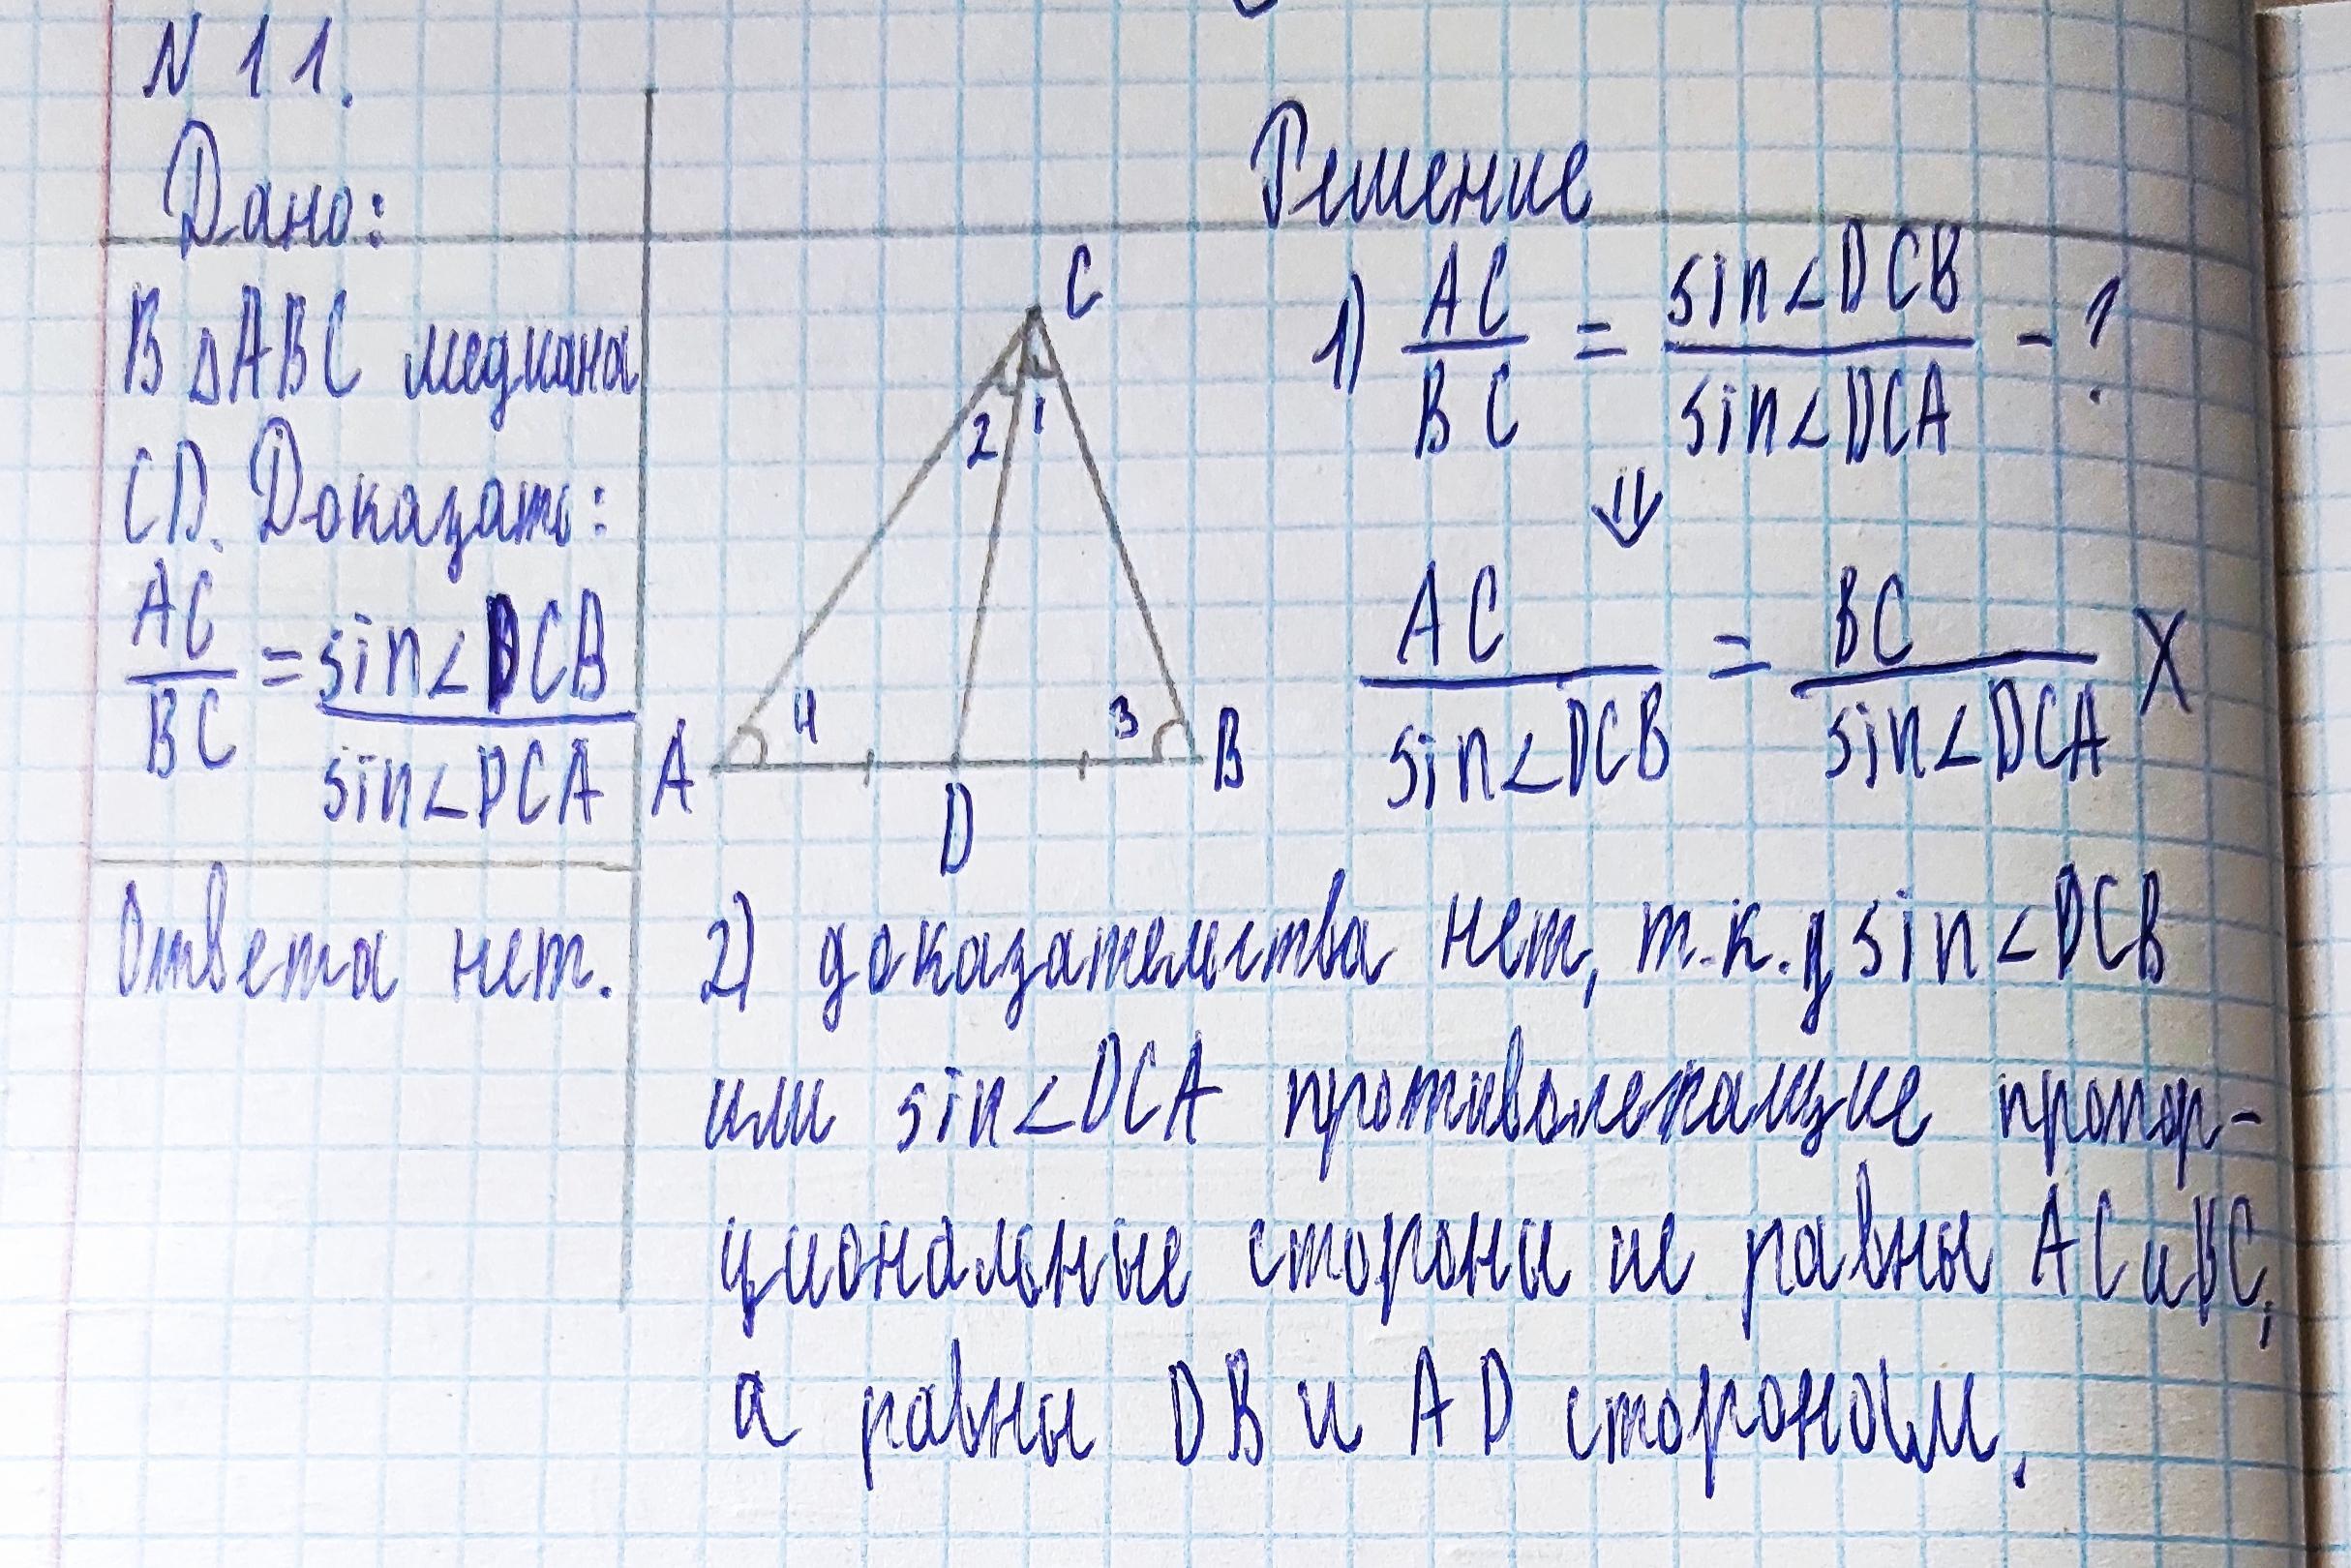 N 11.
Дано:
В △ABC медиана
CD. Доказать:
AC/BC = sin∠DCB/sin∠DCA
Ответа нет.
C
2 1
4 3
A D B
Решение
1) AC/BC = sin∠DCB/sin∠DCA - ?
⇓
AC/sin∠DCB = BC/sin∠DCA X
2) доказательства нет, т.к. у sin∠DCB
или sin∠DCA противолежащие пропор-
циональные стороны не равны AC и BC,
а равны DB и AD сторонам.